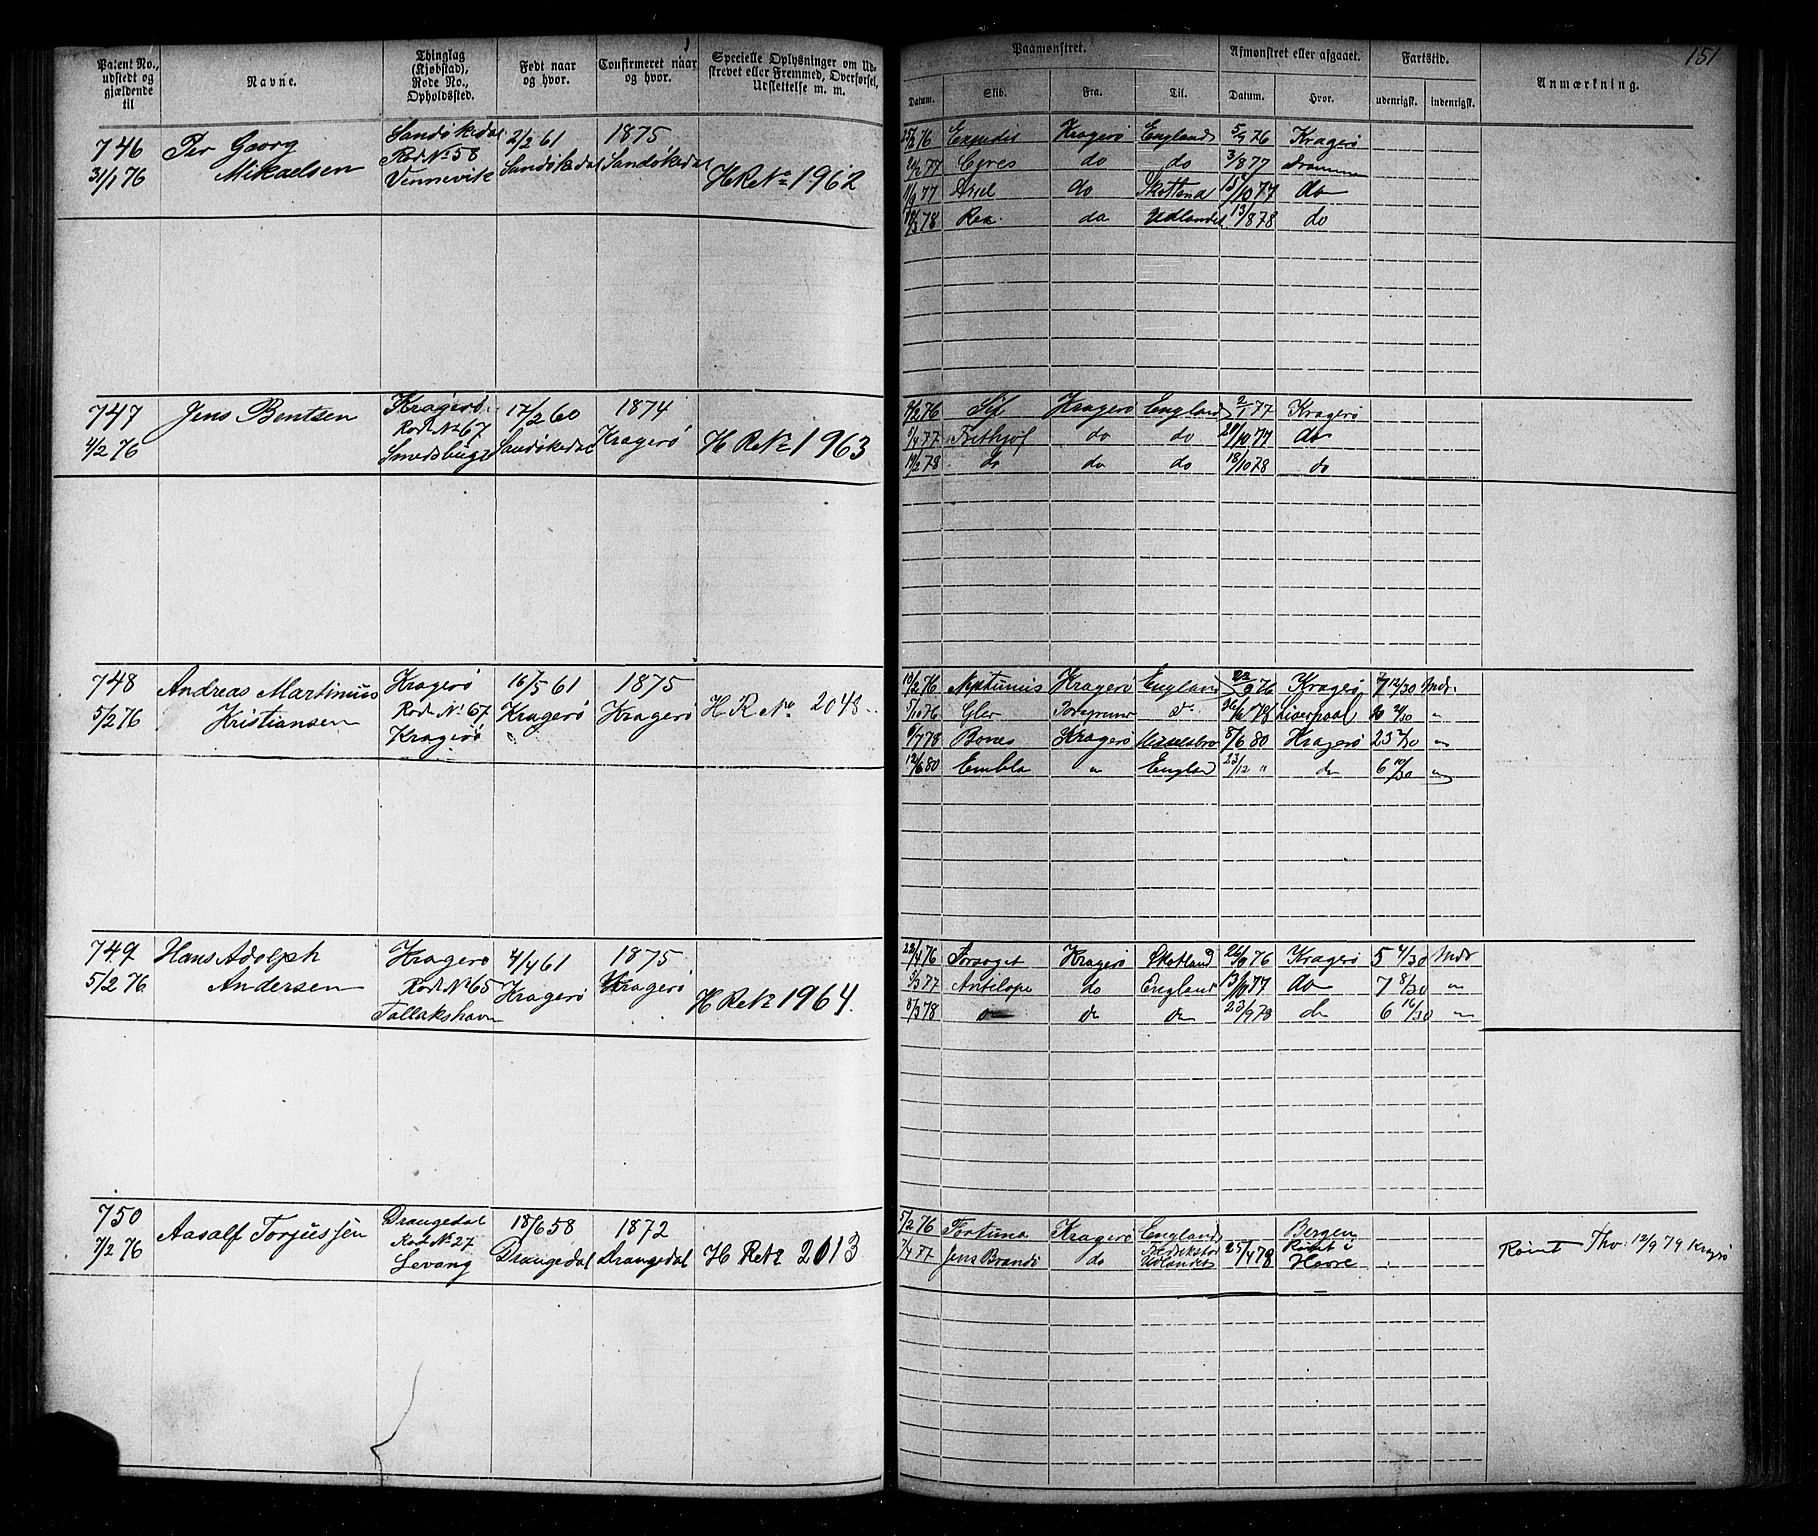 151
Patent No., udstedt og gjældende til
Navne.
Thinglag (Kjøbstad), Rode No., Opholdssted.
Født naar og hvor.
Confirmeret naar og hvor.
Specielle Oplysninger om Udskrevet eller Fremmed, Overførsel, Udslettelse m. m.
Paamønstret.
Datum. Skib. Fra. Til.
Afmønstret eller afgaaet.
Datum. Hvor.
Fartstid.
udenrigsk. indenrigsk.
Anmærkning.
746
31/1 76
Per Georg
Mikaelsen
Sandökedal
Rod No 58
Vennevik
2/2 61
Sandökedal
1875
Sandökedal
H R No 1962
Expedit Kragerö England 5/9 76 Kragerö
Ceres do do 3/8 77 Drammen
11/9 77 Ariel do Skotland 15/10 77 do
Rea do Udlandet 13/8 78 do
747
4/2 76
Jens Bentsen
Kragerö
Rod No 67
17/2 60
Sandökedal
1874
Kragerö
H R No 1963
Sif Kragerö England 2/1 77 Kragerö
do do do
do do do 18/10 78 do
748
5/2 76
Andreas Martinius
Kristiansen
Kragerö
Rod No 67
Kragerö
16/5 61
Kragerö
1875
Kragerö
H R No 2048
10/2 76 Neptunus Kragerö England 22/9 76 Kragerö 7 12/30 Mdr.
5/10 76 Gler do Liverpool "
Bones Kragerö 8/6 80 Kragerö 23 "
12/6 80 Embla " England 23/12 " do 6 10/30 "
749
5/2 76
Hans Adolph
Andersen
Kragerö
Rod No 65
Tallakshavn
4/4 61
Kragerö
1875
Kragerö
H R No 1964.
22/4 76 Forsöget Kragerö Skotland 26/9 76 Kragerö 5 4/30 Mdr
3/3 77 Antilope do England 13/10 77 do 7 8/30 "
8/3 78 do do 23/9 78 do 6 16/30 "
750
7/2 76
Aasalf Torjussen
Drangedal
Rod No 27
Levang
18/6 58
Drangedal
1872
Drangedal
H R No 2013
5/2 76 Fortuna Kragerö England Bergen
7/4 77 Jens Brandi do Udlandet 25/4 78 Römt i Havre
Römt Thv: 12/9 79 Kragerö